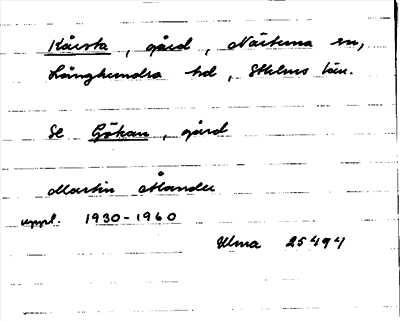 Kårsta, gård, Närtuna sn,
Långhundra hd, Sthlms län.
Se Gökan, gård
Martin Åander
uppl. 1930-1960
Ulma 25494